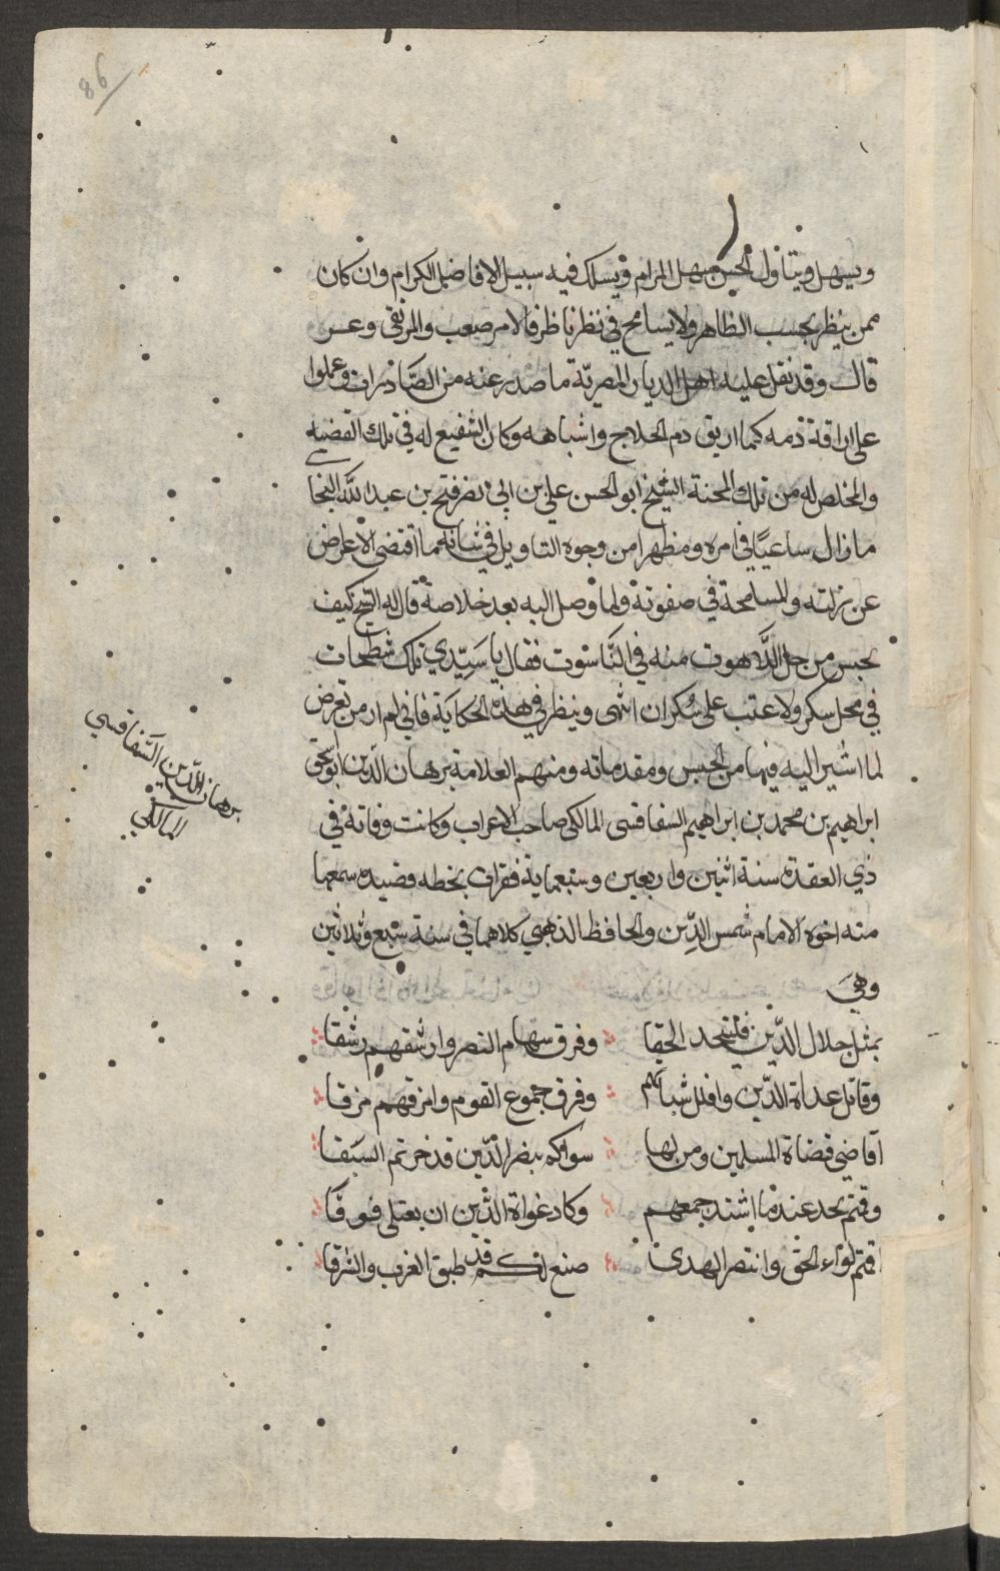 86
ويسهل ويتاول لحسن مهل المرام ويسلك فيه سبيل الافاضل الكرام وان كان
ممن ينظر بحسب الظاهر ولا يسامح في نظر ناظر فالامر صعب والمرتقى وعر
قال وقد نقل عليه اهل الديار المصرية ما صدر عنه من الصادرات وعملوا
على اراقة ذمه كما اريق دم الحلاج واشباهه وكان الشفيع له في تلك القضيه
والمخلص له من تلك المحنة الشيخ ابو الحسن علي بن ابى نصر فتح بن عبد الله البخا
ما زال ساعيًا في امره ومظهرا من وجوه التاويل في شانه ما اقتضى الاعراض
عن زلته والمسامحة في صفوته ولما وصل اليه بعد خلاصة قال له الشيخ كيف
يحبس من حل اللاهوت منه في الناسوت فقال يا سيّدي تلك شطحات
في محل سكر ولا عتب على سكران انتهى وينظر في هذه الحكاية فاني لم ار من تعرض
لما اشير اليه فيها من الحبس ومقدماته ومنهم العلامة برهان الدين ابو اسحق
ابراهيم بن محمد بن ابراهيم السفاقسى المالكى صاحب الاعراب وكانت وفاته في
ذي القعدة سنة اثنين واربعين وسبعماية فقرات بخطه قصيده سمعها
منه اخوه الامام شمس الدين والحافظ الذهبي كلاهما في سنة سبع وثلاثين
وهي
بمثل جلال الدين فليتحد الحقا وفرق سهام النصر وارشقهم رشقا
وقاتل عداة الدين وافلل شباتهم وفرق جموع القوم وامزقهم مزقا
اقاضي قضاة المسلمين ومن لها سواكم بنصر الدين قد خرتم السبقا
وقتم بحد عندما اشتد جمعهم وكاد غواة الدين ان يعتلى فوقا
اقتم لواء الحق وانتصر الهدى صنع لكم قد طبق الغرب والشرقا
برهان الدين السفاقسي
المالكي